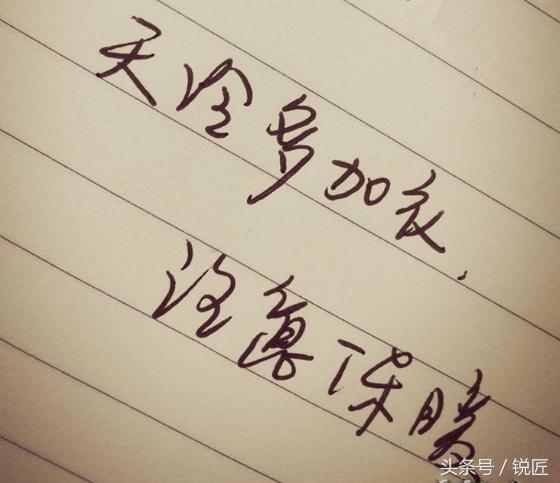 天冷多加衣，
注意保暖
头条号／锐匠